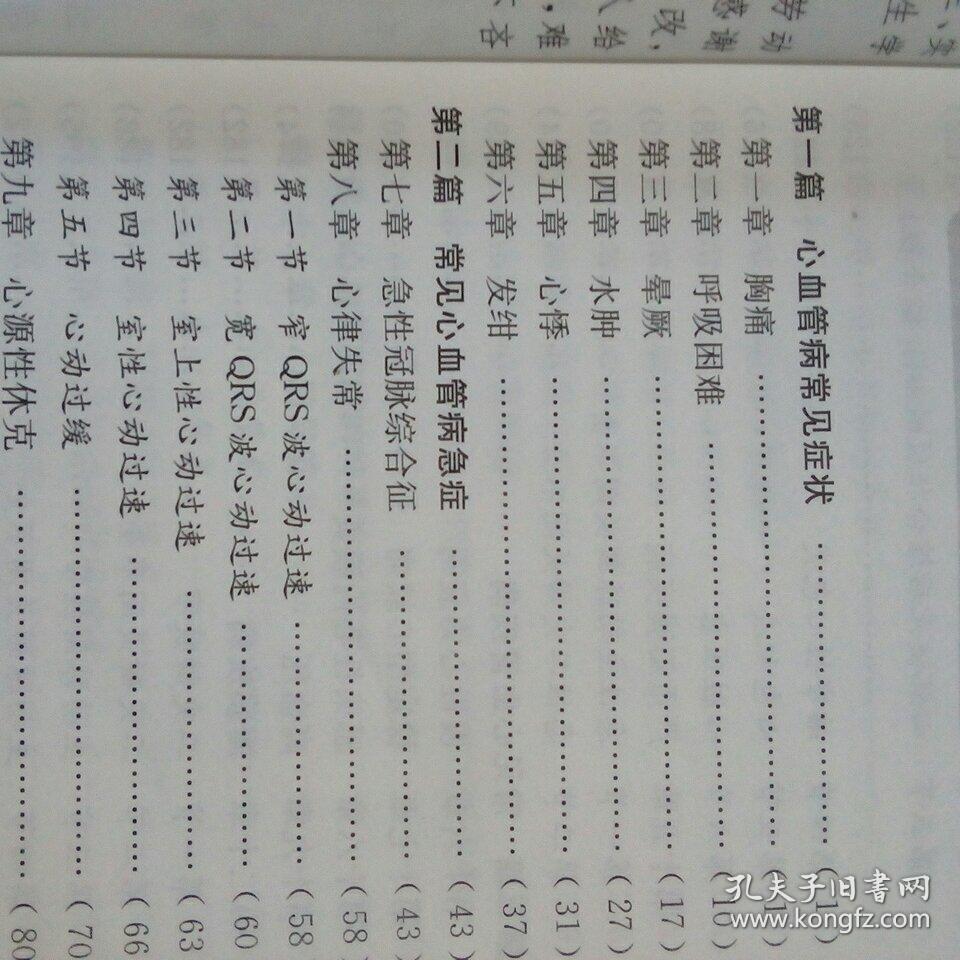 第一篇 心血管病常见症状 ……………………(1)
第一章 胸痛 ……………………(1)
第二章 呼吸困难 ……………………(10)
第三章 晕厥 ……………………(17)
第四章 水肿 ……………………(27)
第五章 心悸 ……………………(31)
第六章 发绀 ……………………(37)
第二篇 常见心血管病急症 ……………………(43)
第七章 急性冠脉综合征 ……………………(43)
第八章 心律失常 ……………………(58)
第一节 窄QRS波心动过速 ……………………(58
第二节 宽QRS波心动过速 ……………………(60
第三节 室上性心动过速 ……………………(63
第四节 室性心动过速 ……………………(66
第五节 心动过缓 ……………………(70
第九章 心源性休克 ……………………(80
孔夫子旧书网
www.kongfz.com